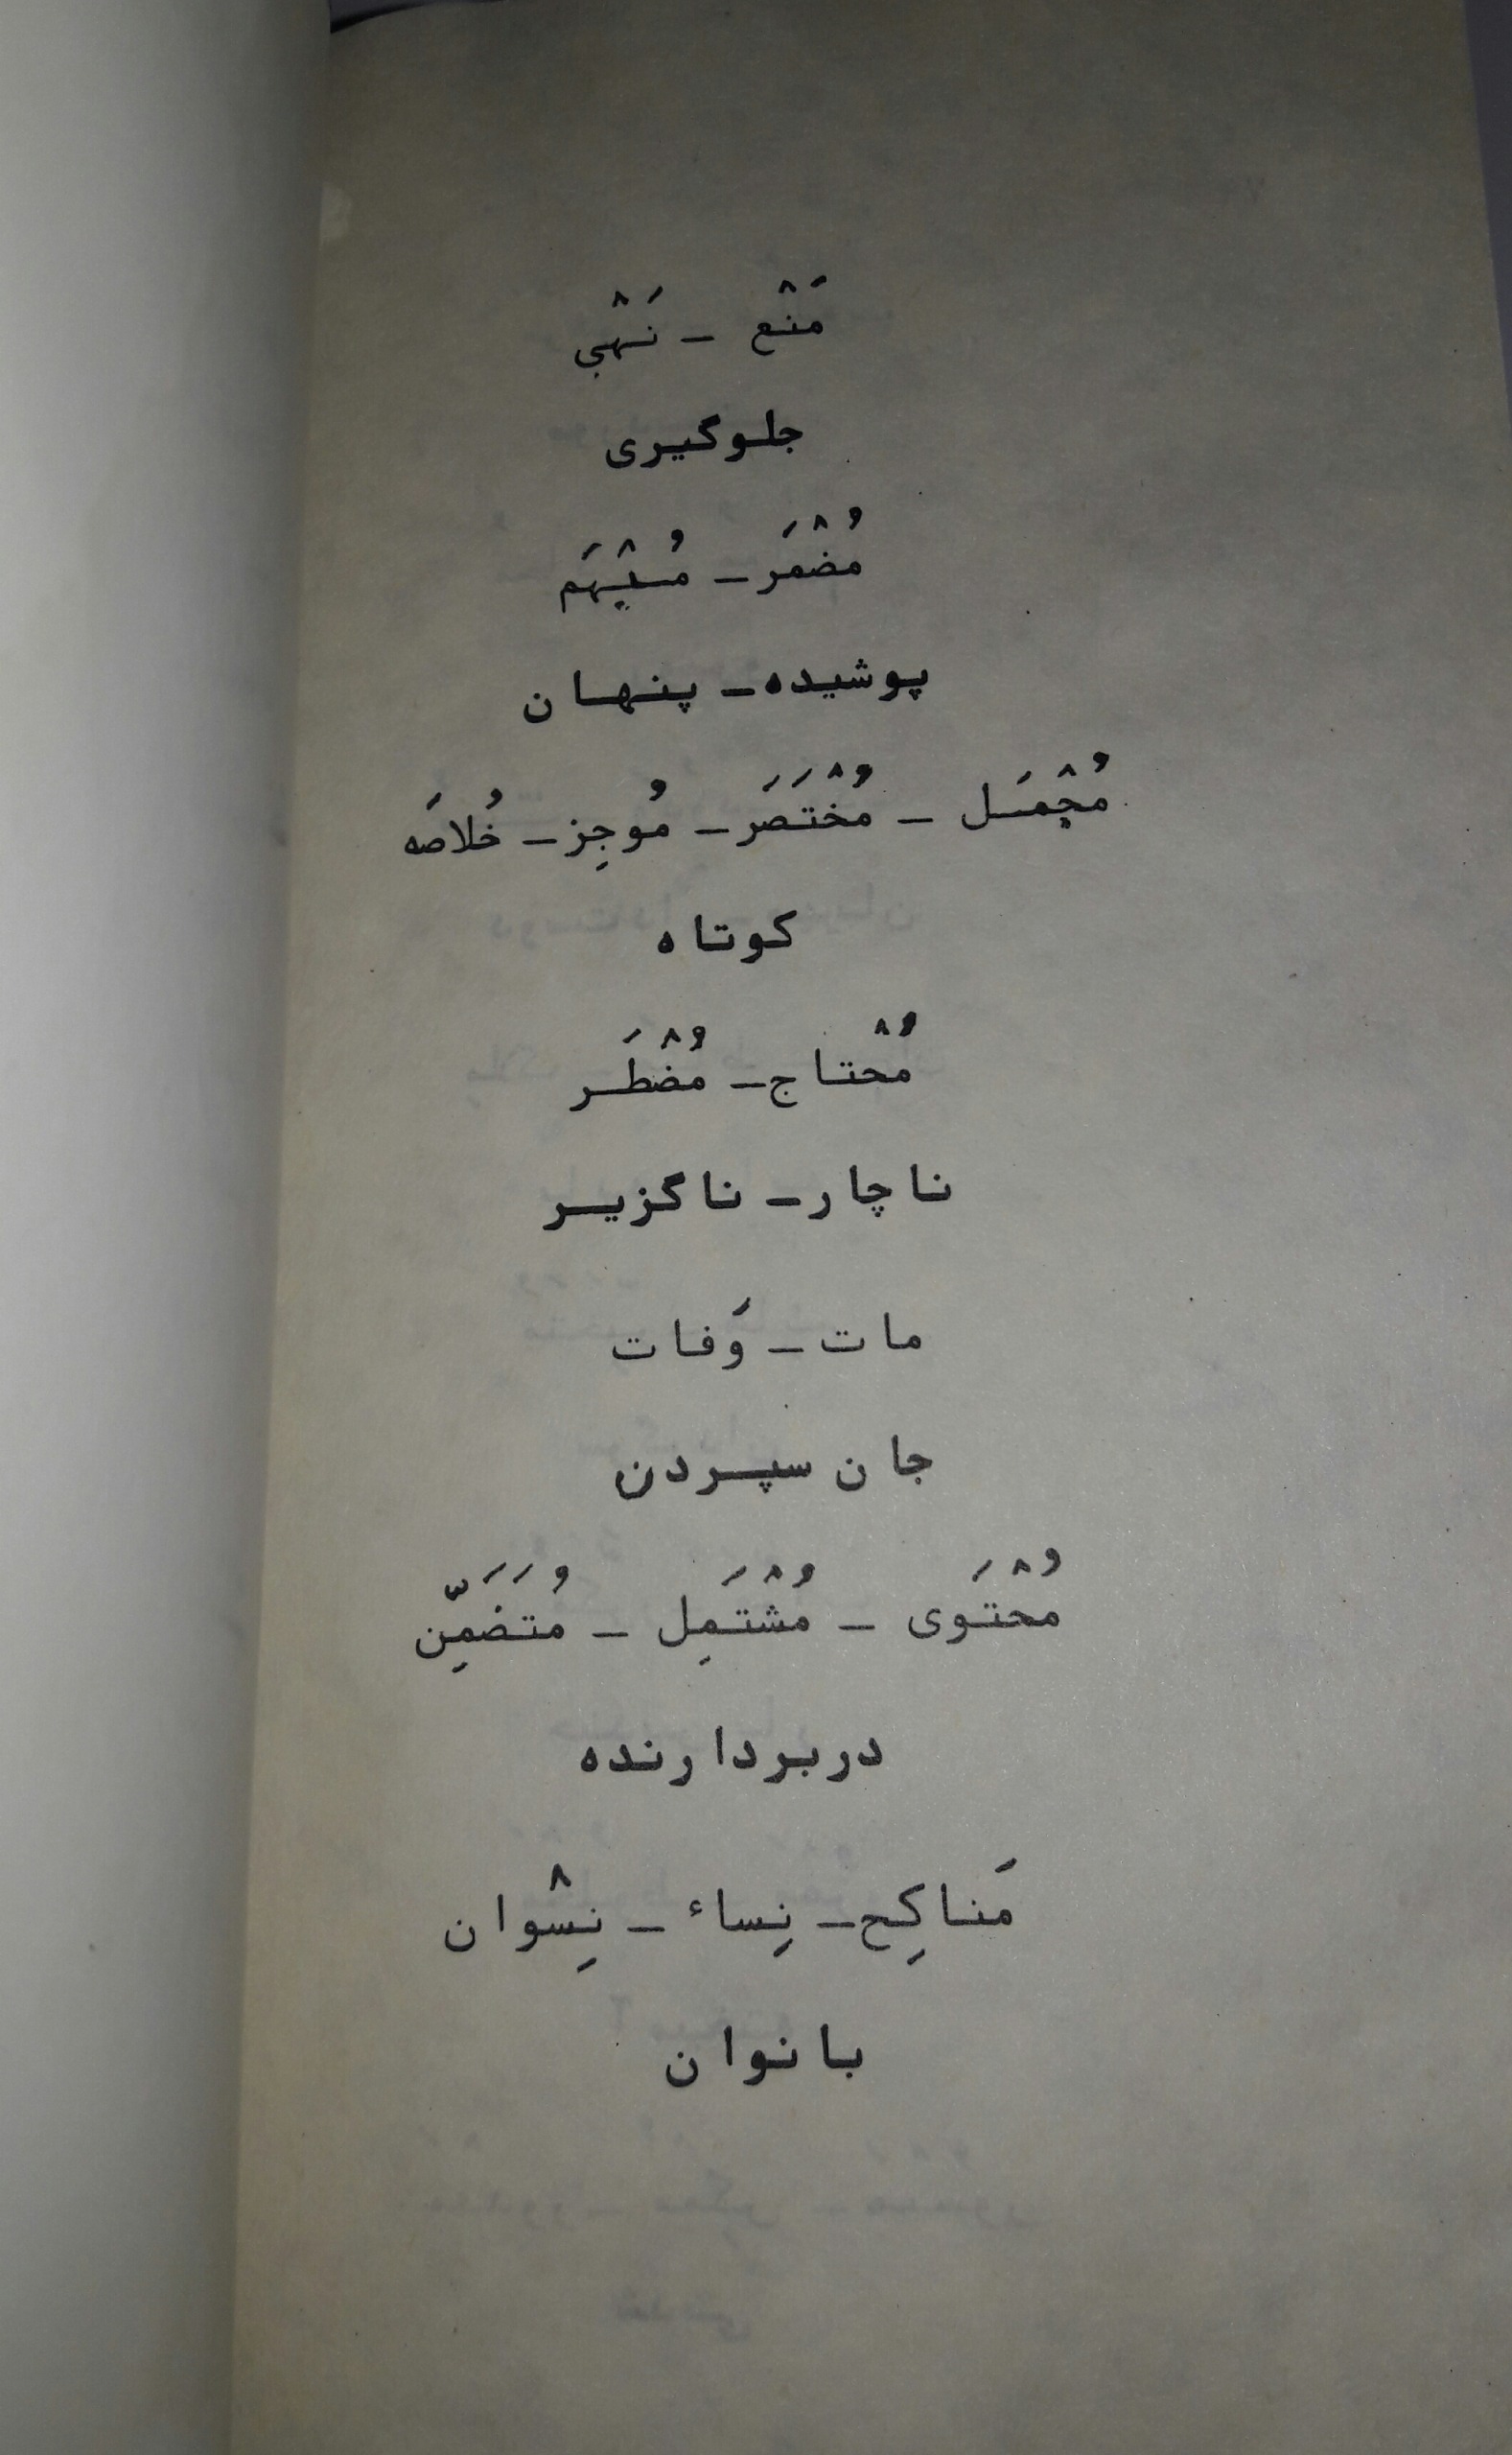 مَنْع - نَهْی
جلوگیری
مُضْمَر - مُبْهَم
پوشیده - پنهان
مُجْمَل - مُخْتَصَر - مُوجِز - خُلاصَه
کوتاه
مُحْتاج - مُضْطَر
ناچار - ناگزیر
مات - وَفات
جان سپردن
مُحْتَوی - مُشْتَمِل - مُتَضَمِّن
دربردارنده
مَناکِح - نِساء - نِسْوان
بانوان